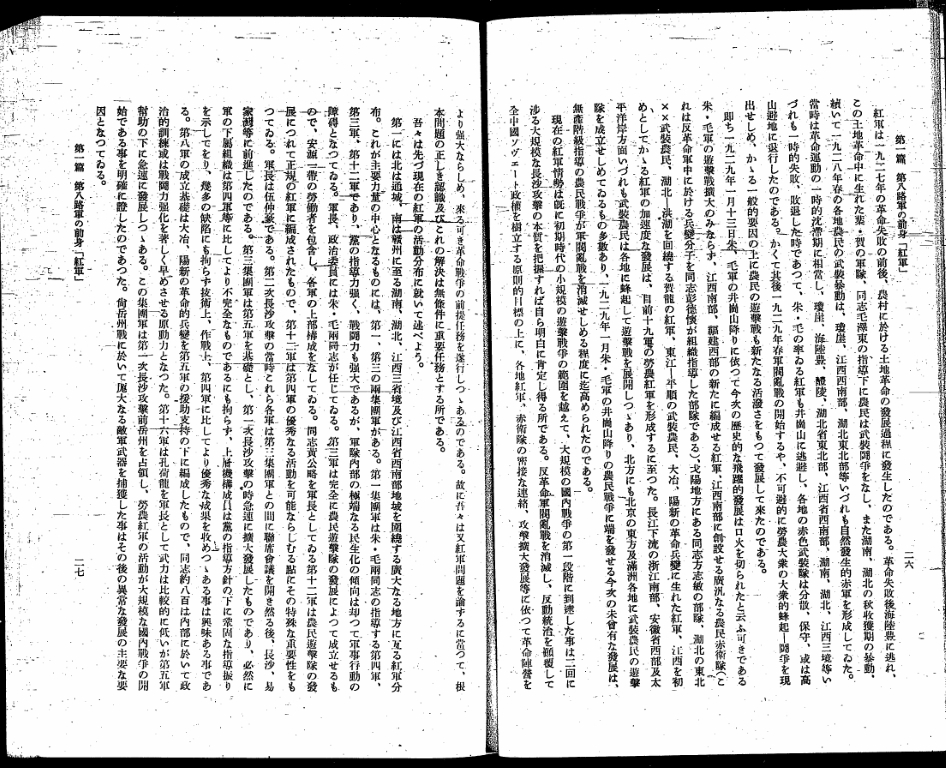 第一篇 第八路軍の前身「紅軍」
二六
紅軍は一九二七年の革命失敗の前後、農村に於ける土地革命の發展過程に發生したのである。革命失敗後海陸豐に逃れ、
この土地革命中に生れた葉・賀の軍隊、同志毛澤東の指導下に農民は武裝鬪爭をなし、また湖南、湖北の秋收獲期の暴動、
續いて一九二八年春の各地農民の武裝暴動は、瓊崖、江西西南部、湖北東北部等いづれも自然發生的赤軍を形成してゐた。
當時は革命運動の一時的沈滯期に相當し、瓊崖、海陸豐、醴陵、湖北省東北部、江西省西南部、湖南、湖北、江西三境等い
づれも一時的失敗、敗退した時であつて、朱・毛の率ゐる紅軍も井崗山に逃避し、各地の赤色武裝隊は分散、保守、或は高
山避地に退行したのである。かくて其後一九二九年春軍閥亂戰の開始するや、不可避的に勞農大衆の大衆的蜂起―鬪爭を現
出せしめ、かゝる一般的要因の上に農民の遊擊戰も新たなる活潑さをもつて發展して來たのである。
即ち一九二九年一月十三日朱、毛軍の井崗山降りに依つて今次の歷史的な飛躍的發展は口火を切られたと云ふ可きである
朱・毛軍の遊擊戰擴大のみならず、江西南部、福建西部の新たに編成せる紅軍、江西南部に創設せる廣汎なる農民赤衛隊(こ
れは反革命軍中に於ける兵變分子を同志彭德懷が組織指導した部隊である)、弋陽地方にある同志方志敏の部隊、湖北の東北
××武裝農民、湖北―洪湖を回繞する賀龍の紅軍、東江―平順の武裝農民、大冶、陽新の革命兵變に生れた紅軍、江西を初
めとしてかゝる紅軍の加速度な發展は、目前十九軍の勞農紅軍を形成するに至つた。長江下流の浙江南部、安徽省西部及太
平洋岸方面いづれも武裝農民は各地に蜂起して遊擊戰を展開しつゝあり、北方にも北京の東方及滿洲各地にも武裝農民の遊擊
隊を成立せしめてゐるもの多數あり、一九二九年一月朱・毛軍の井崗山降りの農民戰爭に端を發せる今次の未曾有な發展は、
無產階級指導の農民戰爭が軍閥亂戰を消滅せしめる程度に迄高められたのである。
現在の紅軍情勢は既に初期時代の小規模の遊擊戰爭の範圍を越えて、大規模の國內戰爭の第一段階に到達した事は二回に
涉る大規模な長沙攻擊の本質を把握すれば自ら明白に肯定し得る所である。反革命軍閥亂戰を消滅し、反動統治を顚覆して
全中國ソヴエート政權を樹立する原則的目標の上に、各地紅軍、赤衛隊の密接な連絡、攻擊擴大發展等に依つて革命陣營を
より强大ならしめ、來る可き革命戰爭の前提任務を遂行しつゝあるのである。故に吾々は又紅軍問題を論ずるに當つて、根
本問題の正しき認識及びこれの解決は無條件に重要任務とする所である。
吾々は先づ現在の紅軍の活動分布に就いて述べよう。
第一には北は通城、南は贛州に至る湖南、湖北、江西三省境及び江西省西南部地域を圍繞する廣大なる地方に亙る紅軍分
布。これが主要力量の中心となるものには、第一、第三の兩集團軍がある。第一集團軍は朱・毛兩同志の指導する第四軍、
第三軍、第十二軍であり、黨の指導力强く、戰鬪力も强大であるが、軍隊內部の極端なる民主化の傾向は却つて軍事行動の
障碍となつてゐる。軍長、政治委員には朱・毛兩同志が任じてゐる。第三軍は完全に農民遊擊隊の發展によつて成立せるも
ので、安源一帶の勞働者を包含し、各軍の上部構成をなしてゐる。同志黃公略を軍長としてゐる第十二軍は農民遊擊隊の發
展につれて正規の紅軍に編成されたもので、第十二軍は第四軍の優秀なる活動を可能ならしむる點にその特殊な重要性をも
つてゐる。軍長は伍仲豪である。第二次長沙攻擊の當時これら各軍は第三集團軍との間に聯席會議を開き然る後、長沙、易
家灣等に前進したのである。第三集團軍は第五軍を基礎とし、第一次長沙攻擊の時急速に擴大發展したものであり、必然に
軍の下層組織は第四軍等に比してより不完全なものであるにも拘らず、上層機構成員は黨の指導方針の下に鞏固な指導振り
を示してをり、幾多の缺陷にも拘らず技術上、作戰上、第四軍に比してより優秀な成果を收めつゝある事は興味ある事であ
る。第八軍の成立基礎は大冶、陽新の革命的兵變を第五軍の援助支持の下に編成したもので、同志約八百は內部に於いて政
治的訓練或は戰鬪力强化を著しく早めさせてる原動力となつた。第十六軍は孔荷龍を軍長として武力は比較的に低いが第五軍
幫助の下に急速に發展しつゝある。この集團軍は第一次長沙攻擊前岳州を占領し、勞農紅軍の活動が大規模な國內戰爭の開
始である事を明確に證したのであつた。尙岳州戰に於いて厖大なる敵軍武器を捕獲した事はその後の異常な發展の主要な要
因となつてゐる。
第一篇 第八路軍の前身「紅軍」
二七